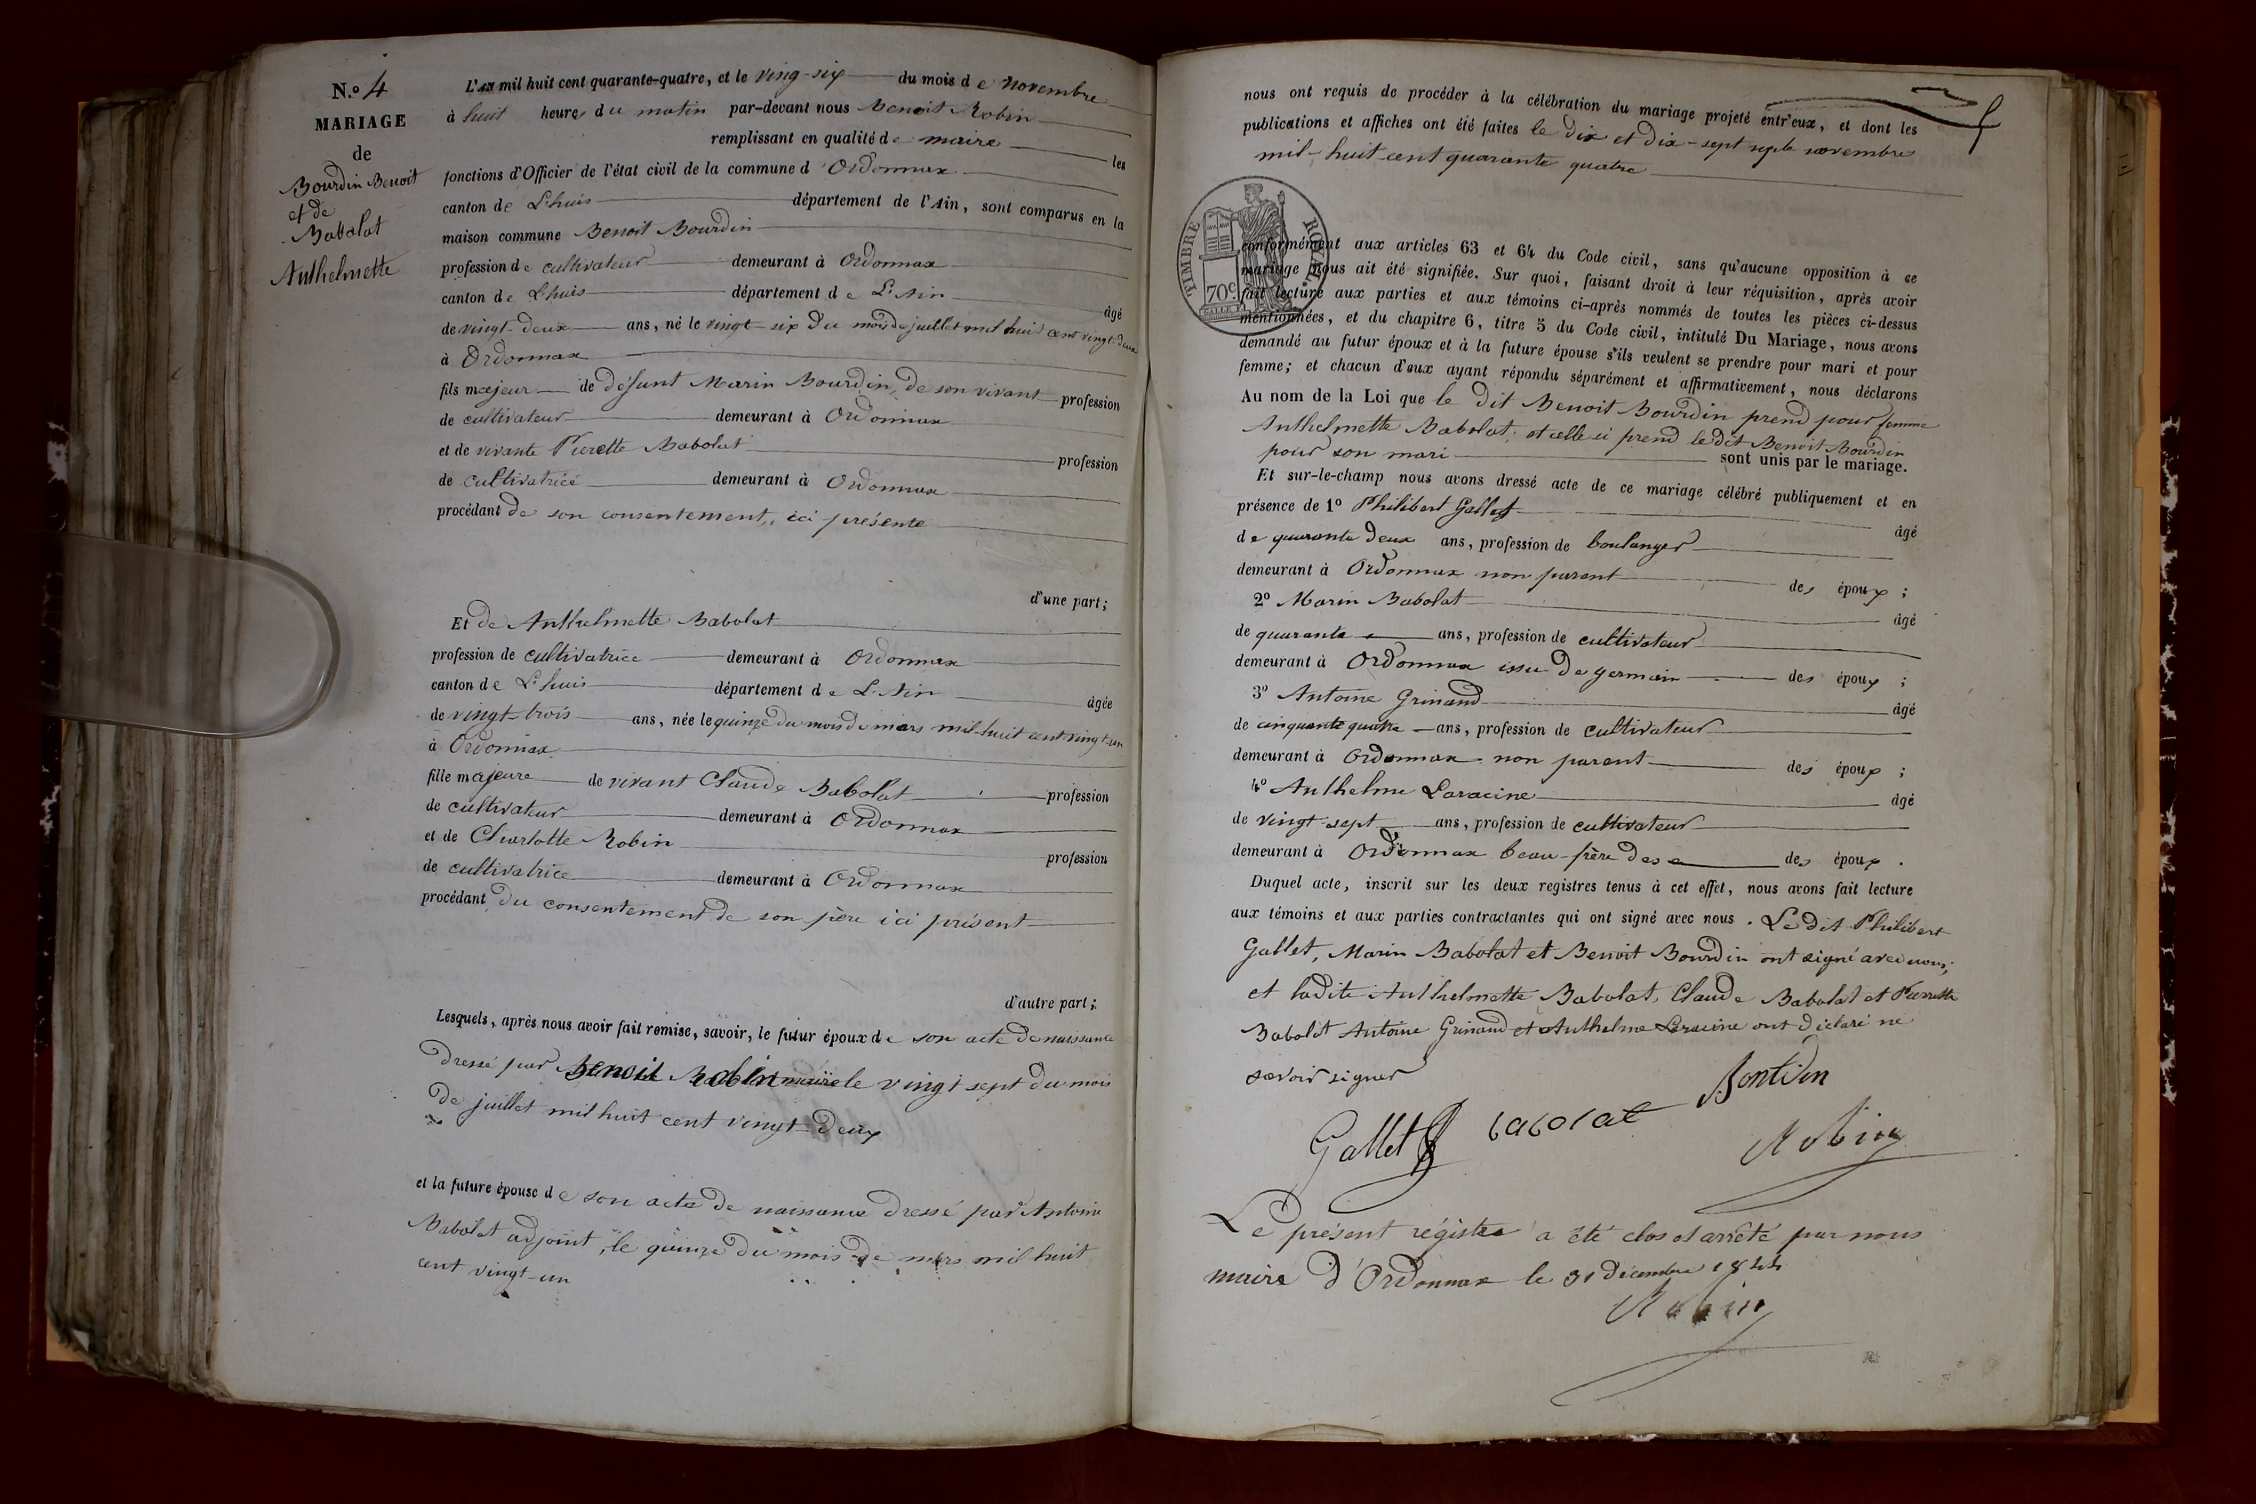 N.º 4
MARIAGE
de
Bourdin Benoit
et de
Babolat
Anthelmette
L'an mil huit cent quarante-quatre, et le vingt-six du mois de novembre
à huit heures du matin par-devant nous Benoit Robin
remplissant en qualité de maire les
fonctions d'Officier de l'état civil de la commune d'Ordonnax
canton de L'huis département de l'Ain, sont comparus en la
maison commune Benoit Bourdin
profession de cultivateur demeurant à Ordonnax
canton de L'huis département de L'Ain âgé
de vingt-deux ans, né le vingt-six du mois de juillet mil huit cent vingt-deux
à Ordonnax
fils majeur de défunt Marin Bourdin, de son vivant profession
de cultivateur demeurant à Ordonnax
et de vivante Pierette Babolat profession
de cultivatrice demeurant à Ordonnax
procédant de son consentement, ici présente
d'une part;
Et de Anthelmette Babolat
profession de cultivatrice demeurant à Ordonnax
canton de L'huis département de L'Ain âgée
de vingt-trois ans, née le quinze du mois de mars mil huit cent vingt-un
à Ordonnax
fille majeure de vivant Claude Babolat profession
de cultivateur demeurant à Ordonnax
et de Charlotte Robin profession
de cultivatrice demeurant à Ordonnax
procédant du consentement de son père ici présent
d'autre part;
Lesquels, après nous avoir fait remise, savoir, le futur époux de son acte de naissance
dressé par Benoit Robin maire le vingt sept du mois
de juillet mil huit cent vingt-deux
et la future épouse de son acte de naissance dressé par Antoine
Babolat adjoint, le quinze du mois de mars mil huit
cent vingt-un
nous ont requis de procéder à la célébration du mariage projeté entr'eux, et dont les
publications et affiches ont été faites le dix et dix-sept novembre
mil-huit cent quarante quatre
TIMBRE ROYAL
70c
conformément aux articles 63 et 64 du Code civil, sans qu'aucune opposition à ce
mariage nous ait été signifiée. Sur quoi, faisant droit à leur réquisition, après avoir
fait lecture aux parties et aux témoins ci-après nommés de toutes les pièces ci-dessus
mentionnées, et du chapitre 6, titre 5 du Code civil, intitulé Du Mariage, nous avons
demandé au futur époux et à la future épouse s'ils veulent se prendre pour mari et pour
femme; et chacun d'eux ayant répondu séparément et affirmativement, nous déclarons
Au nom de la Loi que le dit Benoit Bourdin prend pour femme
Anthelmette Babolat, et celle ci prend le dit Benoit Bourdin
pour son mari sont unis par le mariage.
Et sur-le-champ nous avons dressé acte de ce mariage célébré publiquement et en
présence de 1º Philibert Gallet âgé
de quarante deux ans, profession de boulanger
demeurant à Ordonnax non parent des époux;
2º Marin Babolat âgé
de quarante ans, profession de cultivateur
demeurant à Ordonnax issu de germain des époux;
3º Antoine Grinand âgé
de cinquante quatre ans, profession de cultivateur
demeurant à Ordonnax non parent des époux;
4º Anthelme Laracine âgé
de vingt-sept ans, profession de cultivateur
demeurant à Ordonnax beau-frère des des époux.
Duquel acte, inscrit sur les deux registres tenus à cet effet, nous avons fait lecture
aux témoins et aux parties contractantes qui ont signé avec nous. Le dit Philibert
Gallet, Marin Babolat et Benoit Bourdin ont signé avec nous;
et ladite Anthelmette Babolat, Claude Babolat et Pierrette
Babolat Antoine Grinand et Anthelme Laracine ont déclaré ne
savoir signer
Bourdin
Gallet babolat
Robin
Le présent régistre a été clos et arrêté par nous
maire d'Ordonnax le 31 décembre 1844
Robin